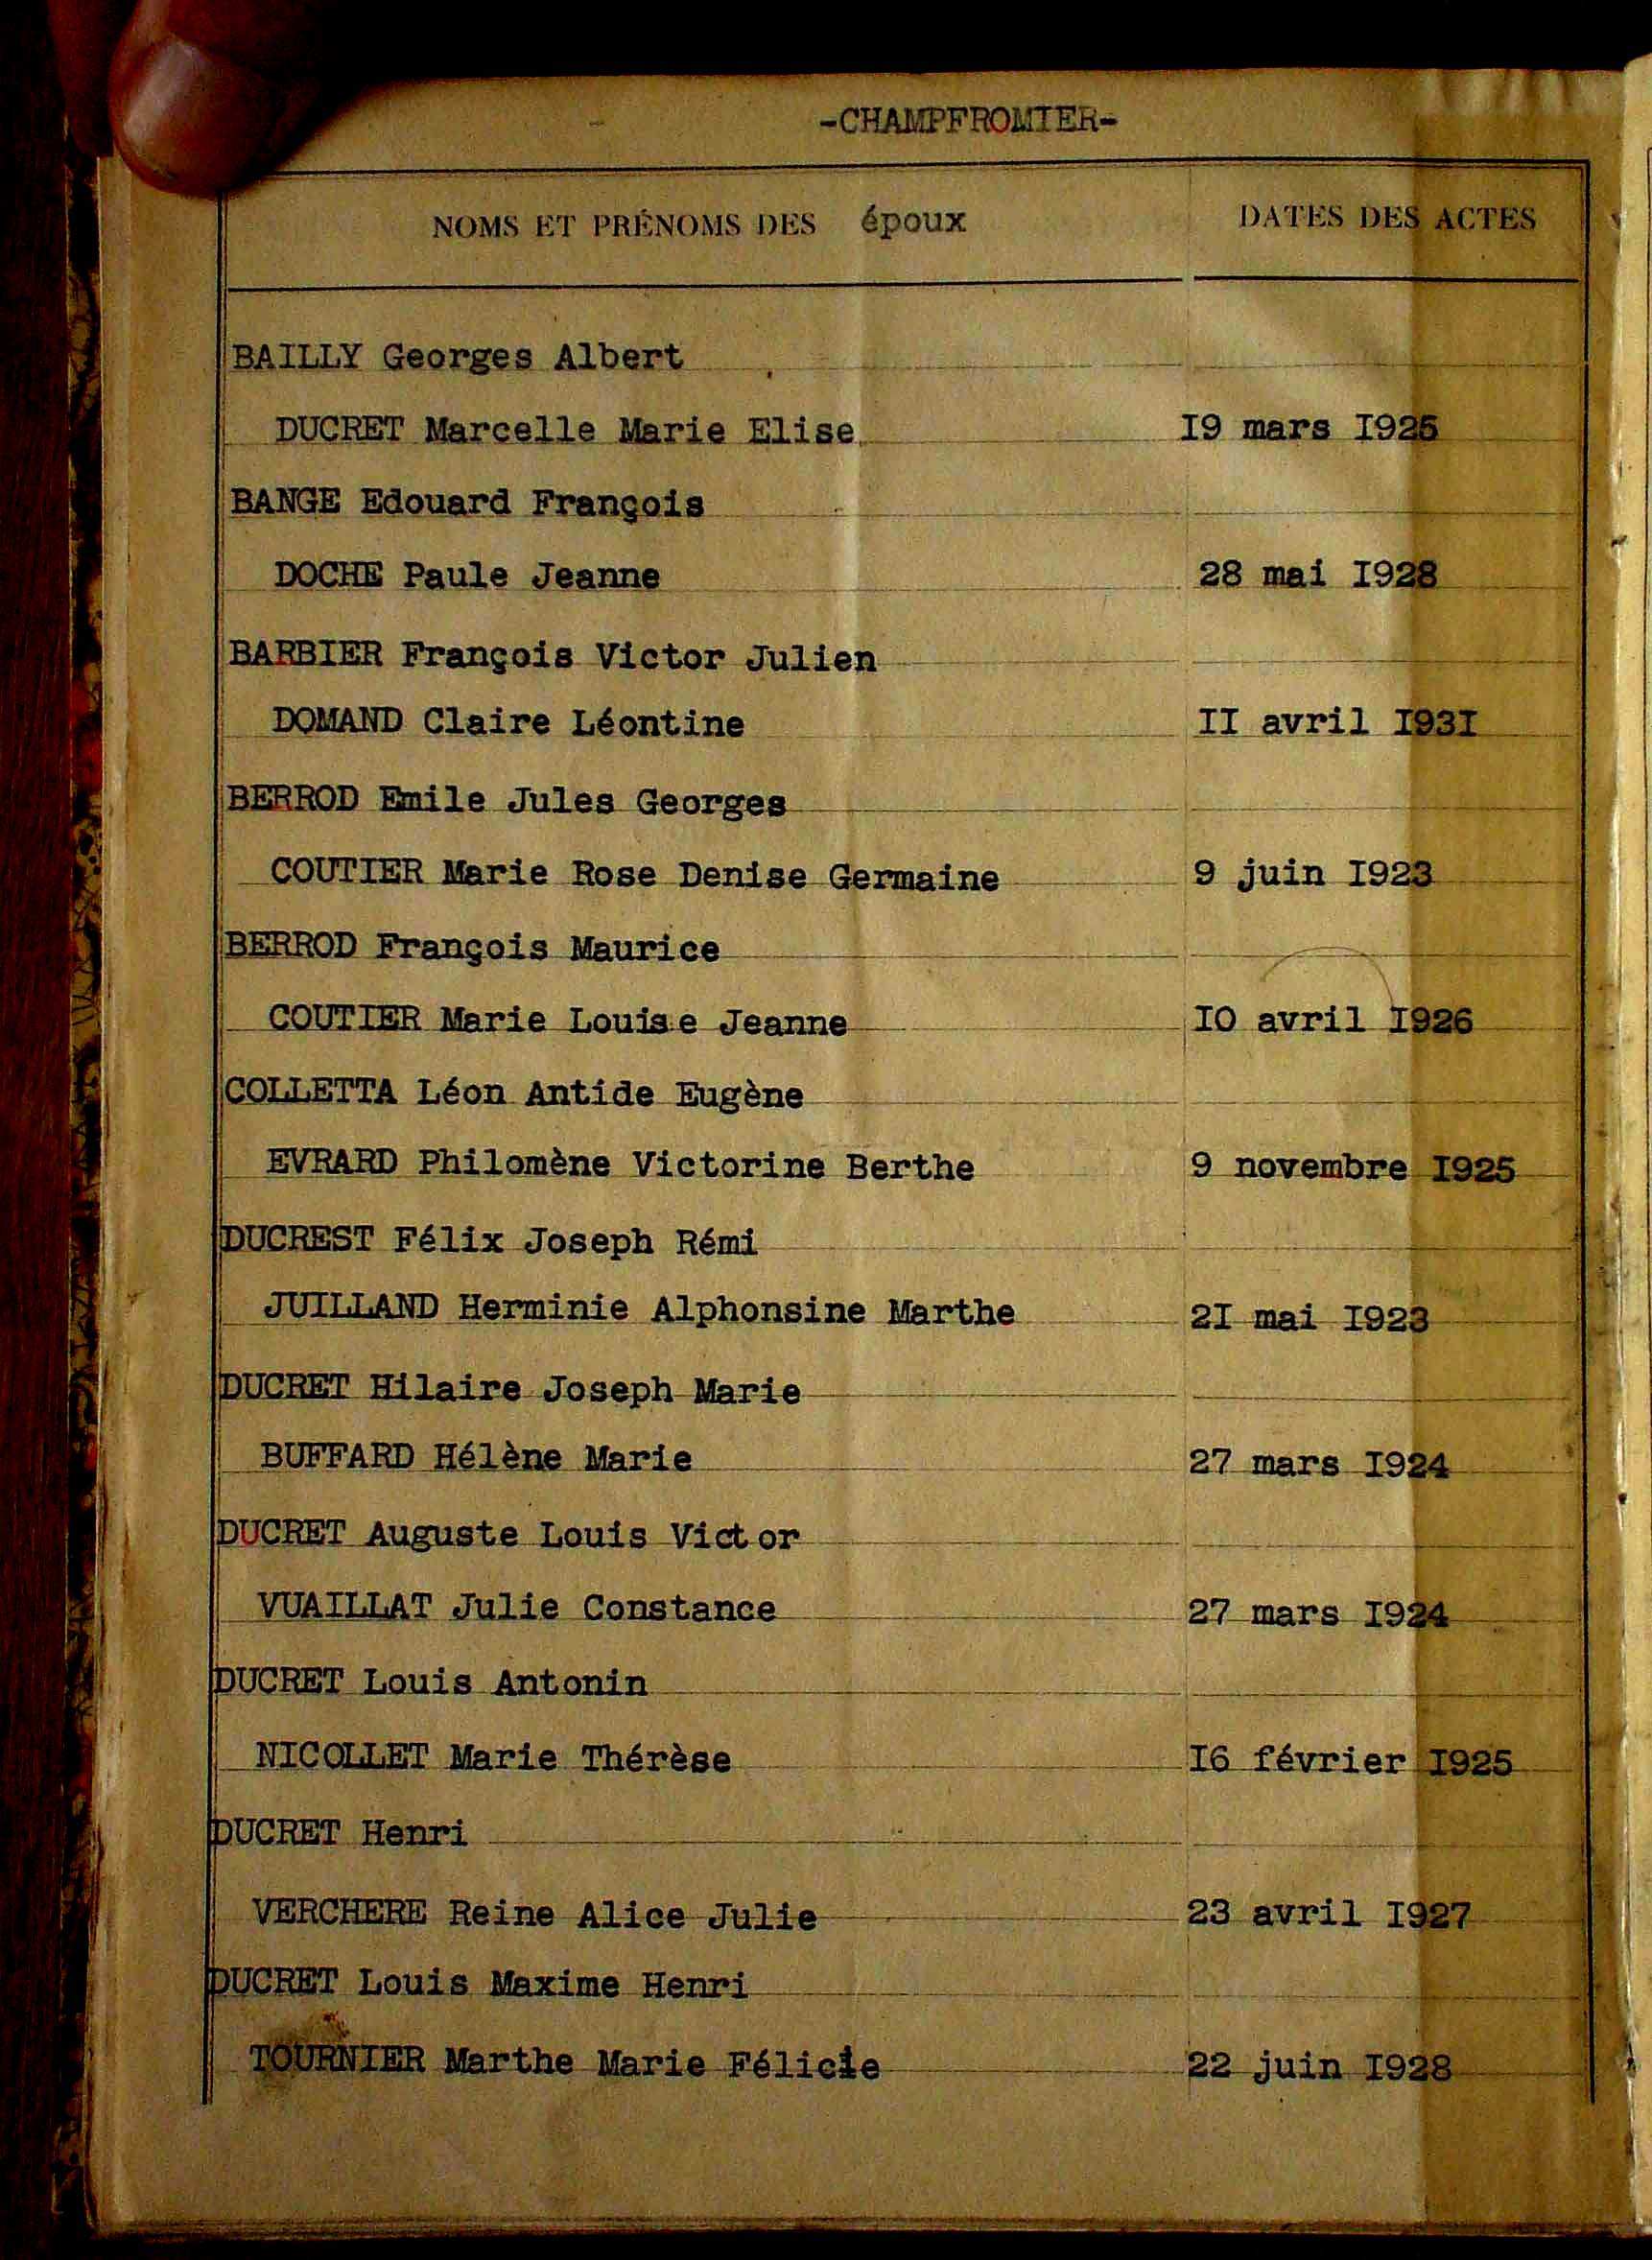 -CHAMPFROMIER-
NOMS ET PRÉNOMS DES époux DATES DES ACTES
BAILLY Georges Albert
DUCRET Marcelle Marie Elise 19 mars 1925
BANGE Edouard François
DOCHE Paule Jeanne 28 mai I928
BARBIER François Victor Julien
DOMAND Claire Léontine II avril I93I
BERROD Emile Jules Georges
COUTIER Marie Rose Denise Germaine 9 juin I923
BERROD François Maurice
COUTIER Marie Louise Jeanne I0 avril I926
COLLETTA Léon Antide Eugène
EVRARD Philomène Victorine Berthe 9 novembre I925
DUCREST Félix Joseph Rémi
JUILLAND Herminie Alphonsine Marthe 2I mai I923
DUCRET Hilaire Joseph Marie
BUFFARD Hélène Marie 27 mars I924
DUCRET Auguste Louis Victor
VUAILLAT Julie Constance 27 mars I924
DUCRET Louis Antonin
NICOLLET Marie Thérèse I6 février I925
DUCRET Henri
VERCHERE Reine Alice Julie 23 avril I927
DUCRET Louis Maxime Henri
TOURNIER Marthe Marie Félicie 22 juin I928